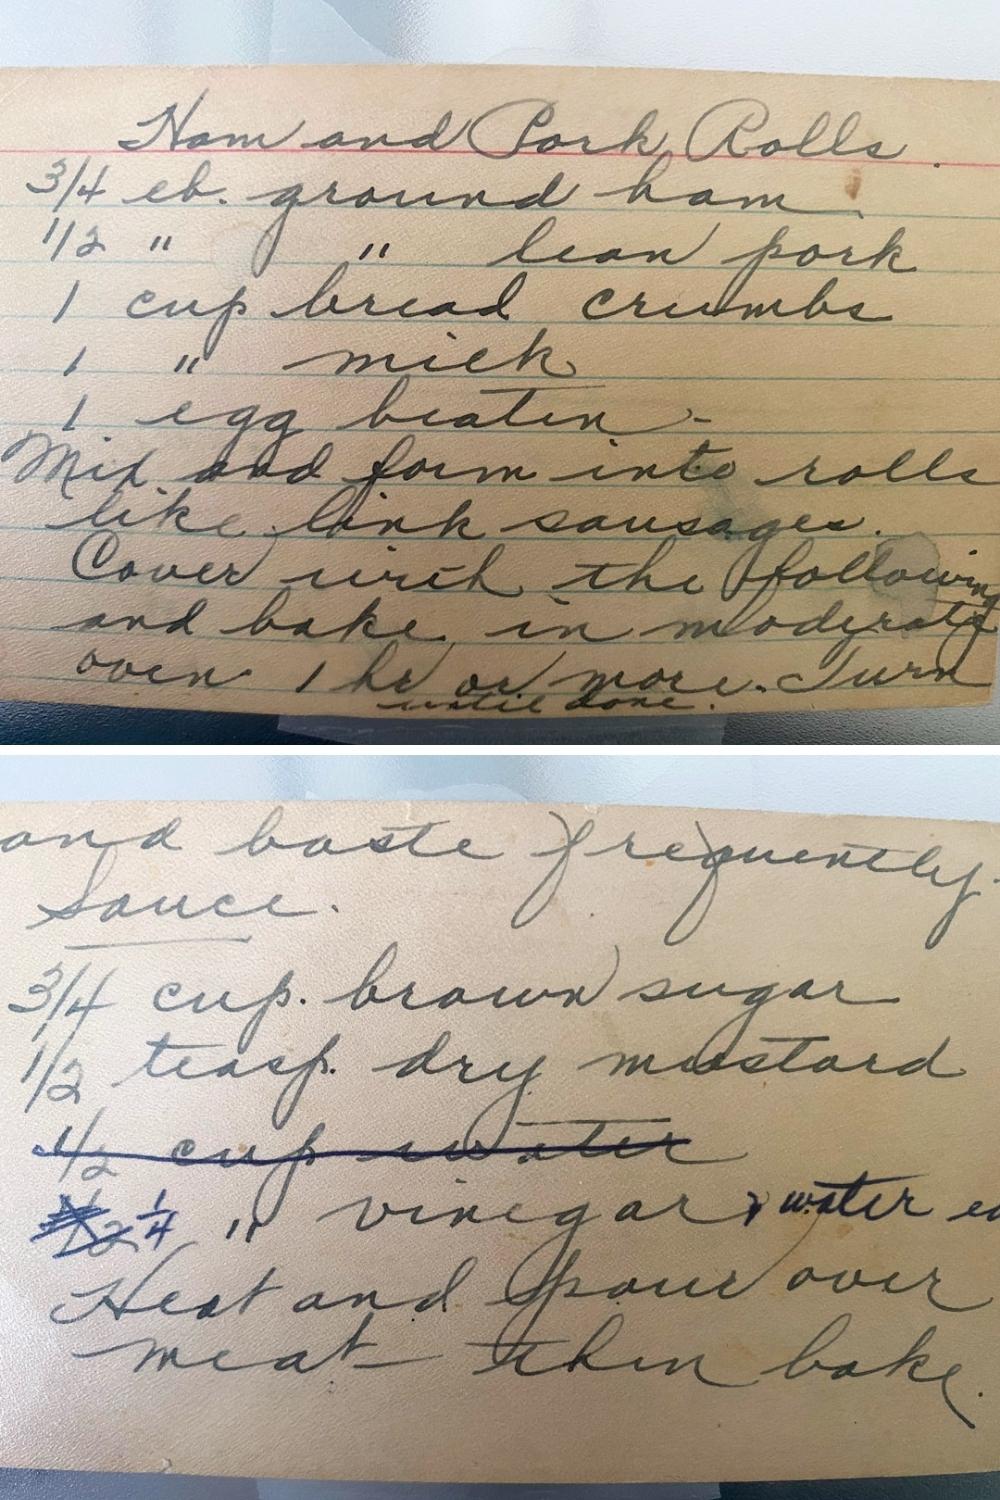 Ham and Pork Rolls.
3/4 lb. ground ham.
1/2 " " lean pork
1 cup bread crumbs
1 " milk
1 egg beaten -
Mix and form into rolls
like link sausages.
Cover with the following
and bake in moderate
oven 1 hr or more. Turn
until done.
and baste frequently.
Sauce.
3/4 cup. brown sugar
1/2 teasp. dry mustard
1/2 cup water
1/2 1/4 " vinegar & water ea
Heat and pour over
meat then bake.